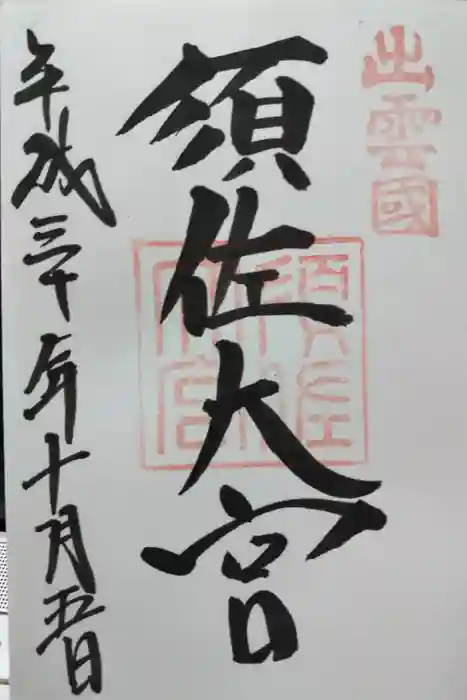 出雲國
須佐大宮
須佐大宮
平成三十年十月五日